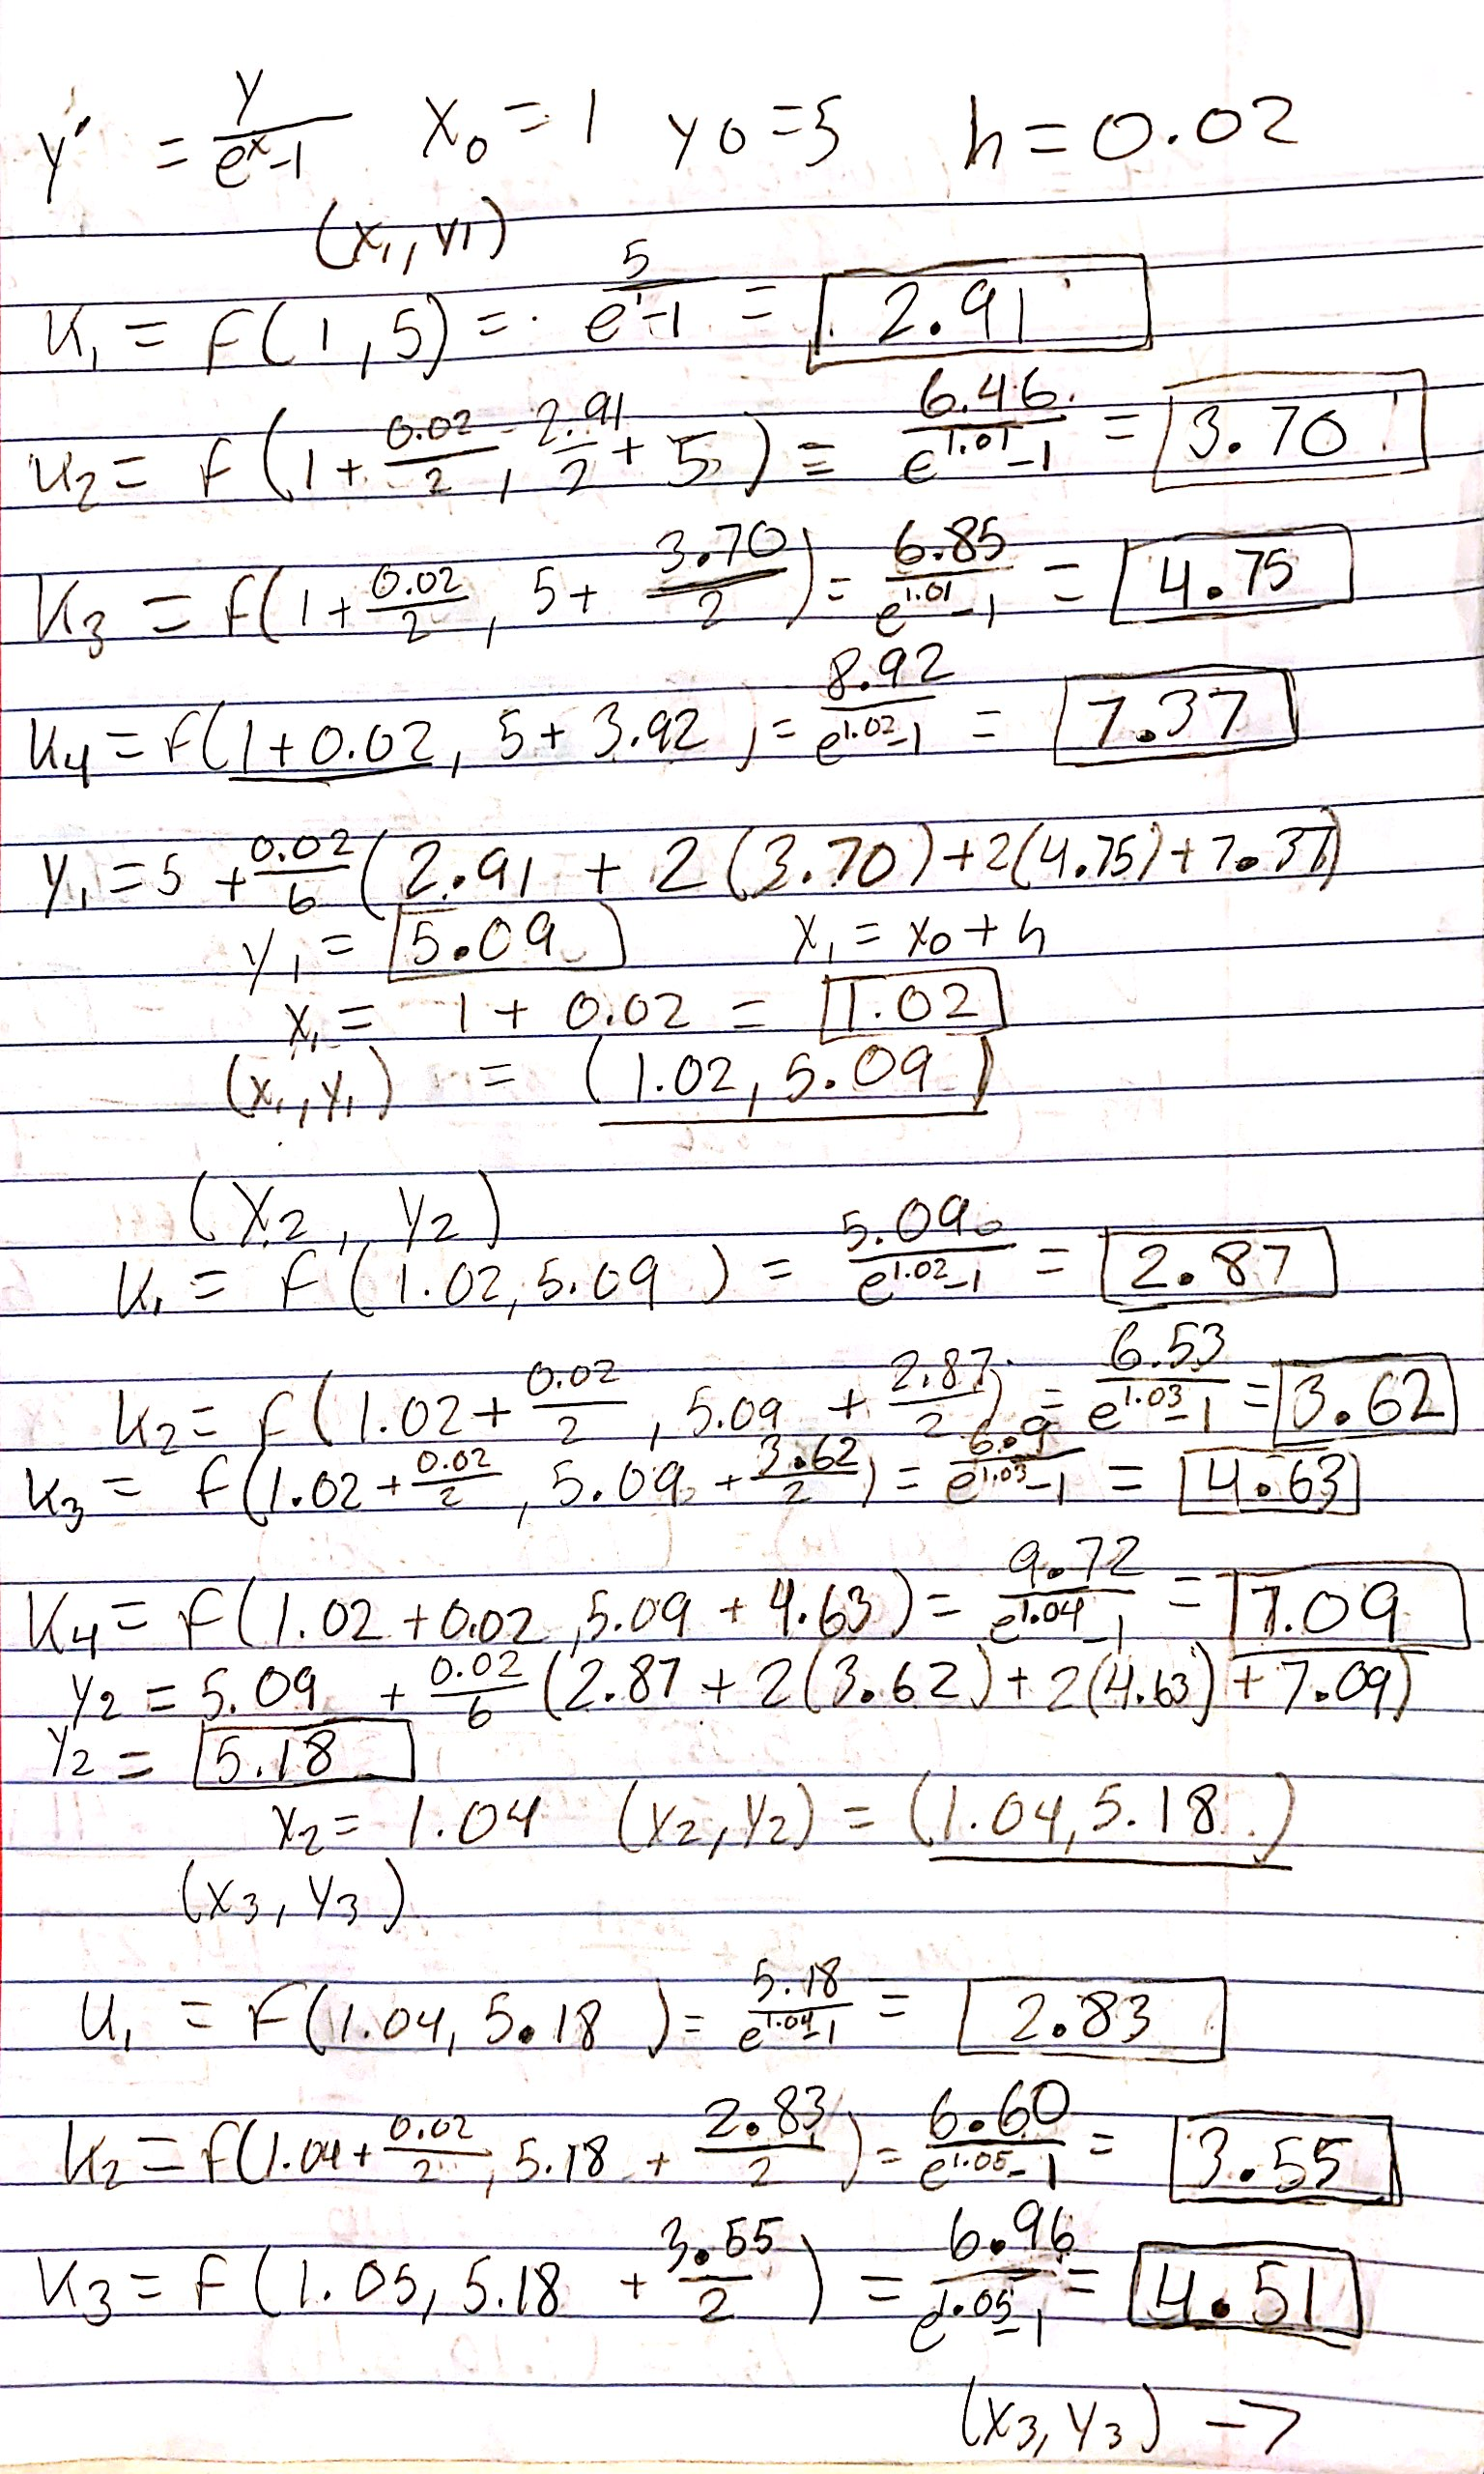 y' = y/(e^x-1)   x₀ = 1   y0 = 5   h = 0.02
(x₁, y1)
K₁ = f(1, 5) = 5/(e¹-1) = 2.91
K₂ = f(1 + 0.02/2, 2.91/2 + 5) = 6.46/(e^1.01 -1) = 3.70
K₃ = f(1 + 0.02/2, 5 + 3.70/2) = 6.85/(e^1.01 -1) = 4.75
K₄ = f(1+0.02, 5 + 3.92) = 8.92/(e^1.02 -1) = 7.37
y₁ = 5 + 0.02/6 (2.91 + 2(3.70) + 2(4.75) + 7.37)
y₁ = 5.09   x₁ = x₀ + h
x₁ = 1 + 0.02 = 1.02
(x₁, y₁) = (1.02, 5.09)
(x₂, y₂)
K₁ = f(1.02, 5.09) = 5.09/(e^1.02 -1) = 2.87
K₂ = f(1.02 + 0.02/2, 5.09 + 2.87/2) = 6.53/(e^1.03 -1) = 3.62
K₃ = f(1.02 + 0.02/2, 5.09 + 3.62/2) = 6.9/(e^1.03 -1) = 4.63
K₄ = f(1.02 + 0.02, 5.09 + 4.63) = 9.72/(e^1.04 -1) = 7.09
y₂ = 5.09 + 0.02/6 (2.87 + 2(3.62) + 2(4.63) + 7.09)
y₂ = 5.18
x₂ = 1.04   (x₂, y₂) = (1.04, 5.18)
(x₃, y₃)
K₁ = f(1.04, 5.18) = 5.18/(e^1.04 -1) = 2.83
K₂ = f(1.04 + 0.02/2, 5.18 + 2.83/2) = 6.60/(e^1.05 -1) = 3.55
K₃ = f(1.05, 5.18 + 3.55/2) = 6.96/(e^1.05 -1) = 4.51
(x₃, y₃) →